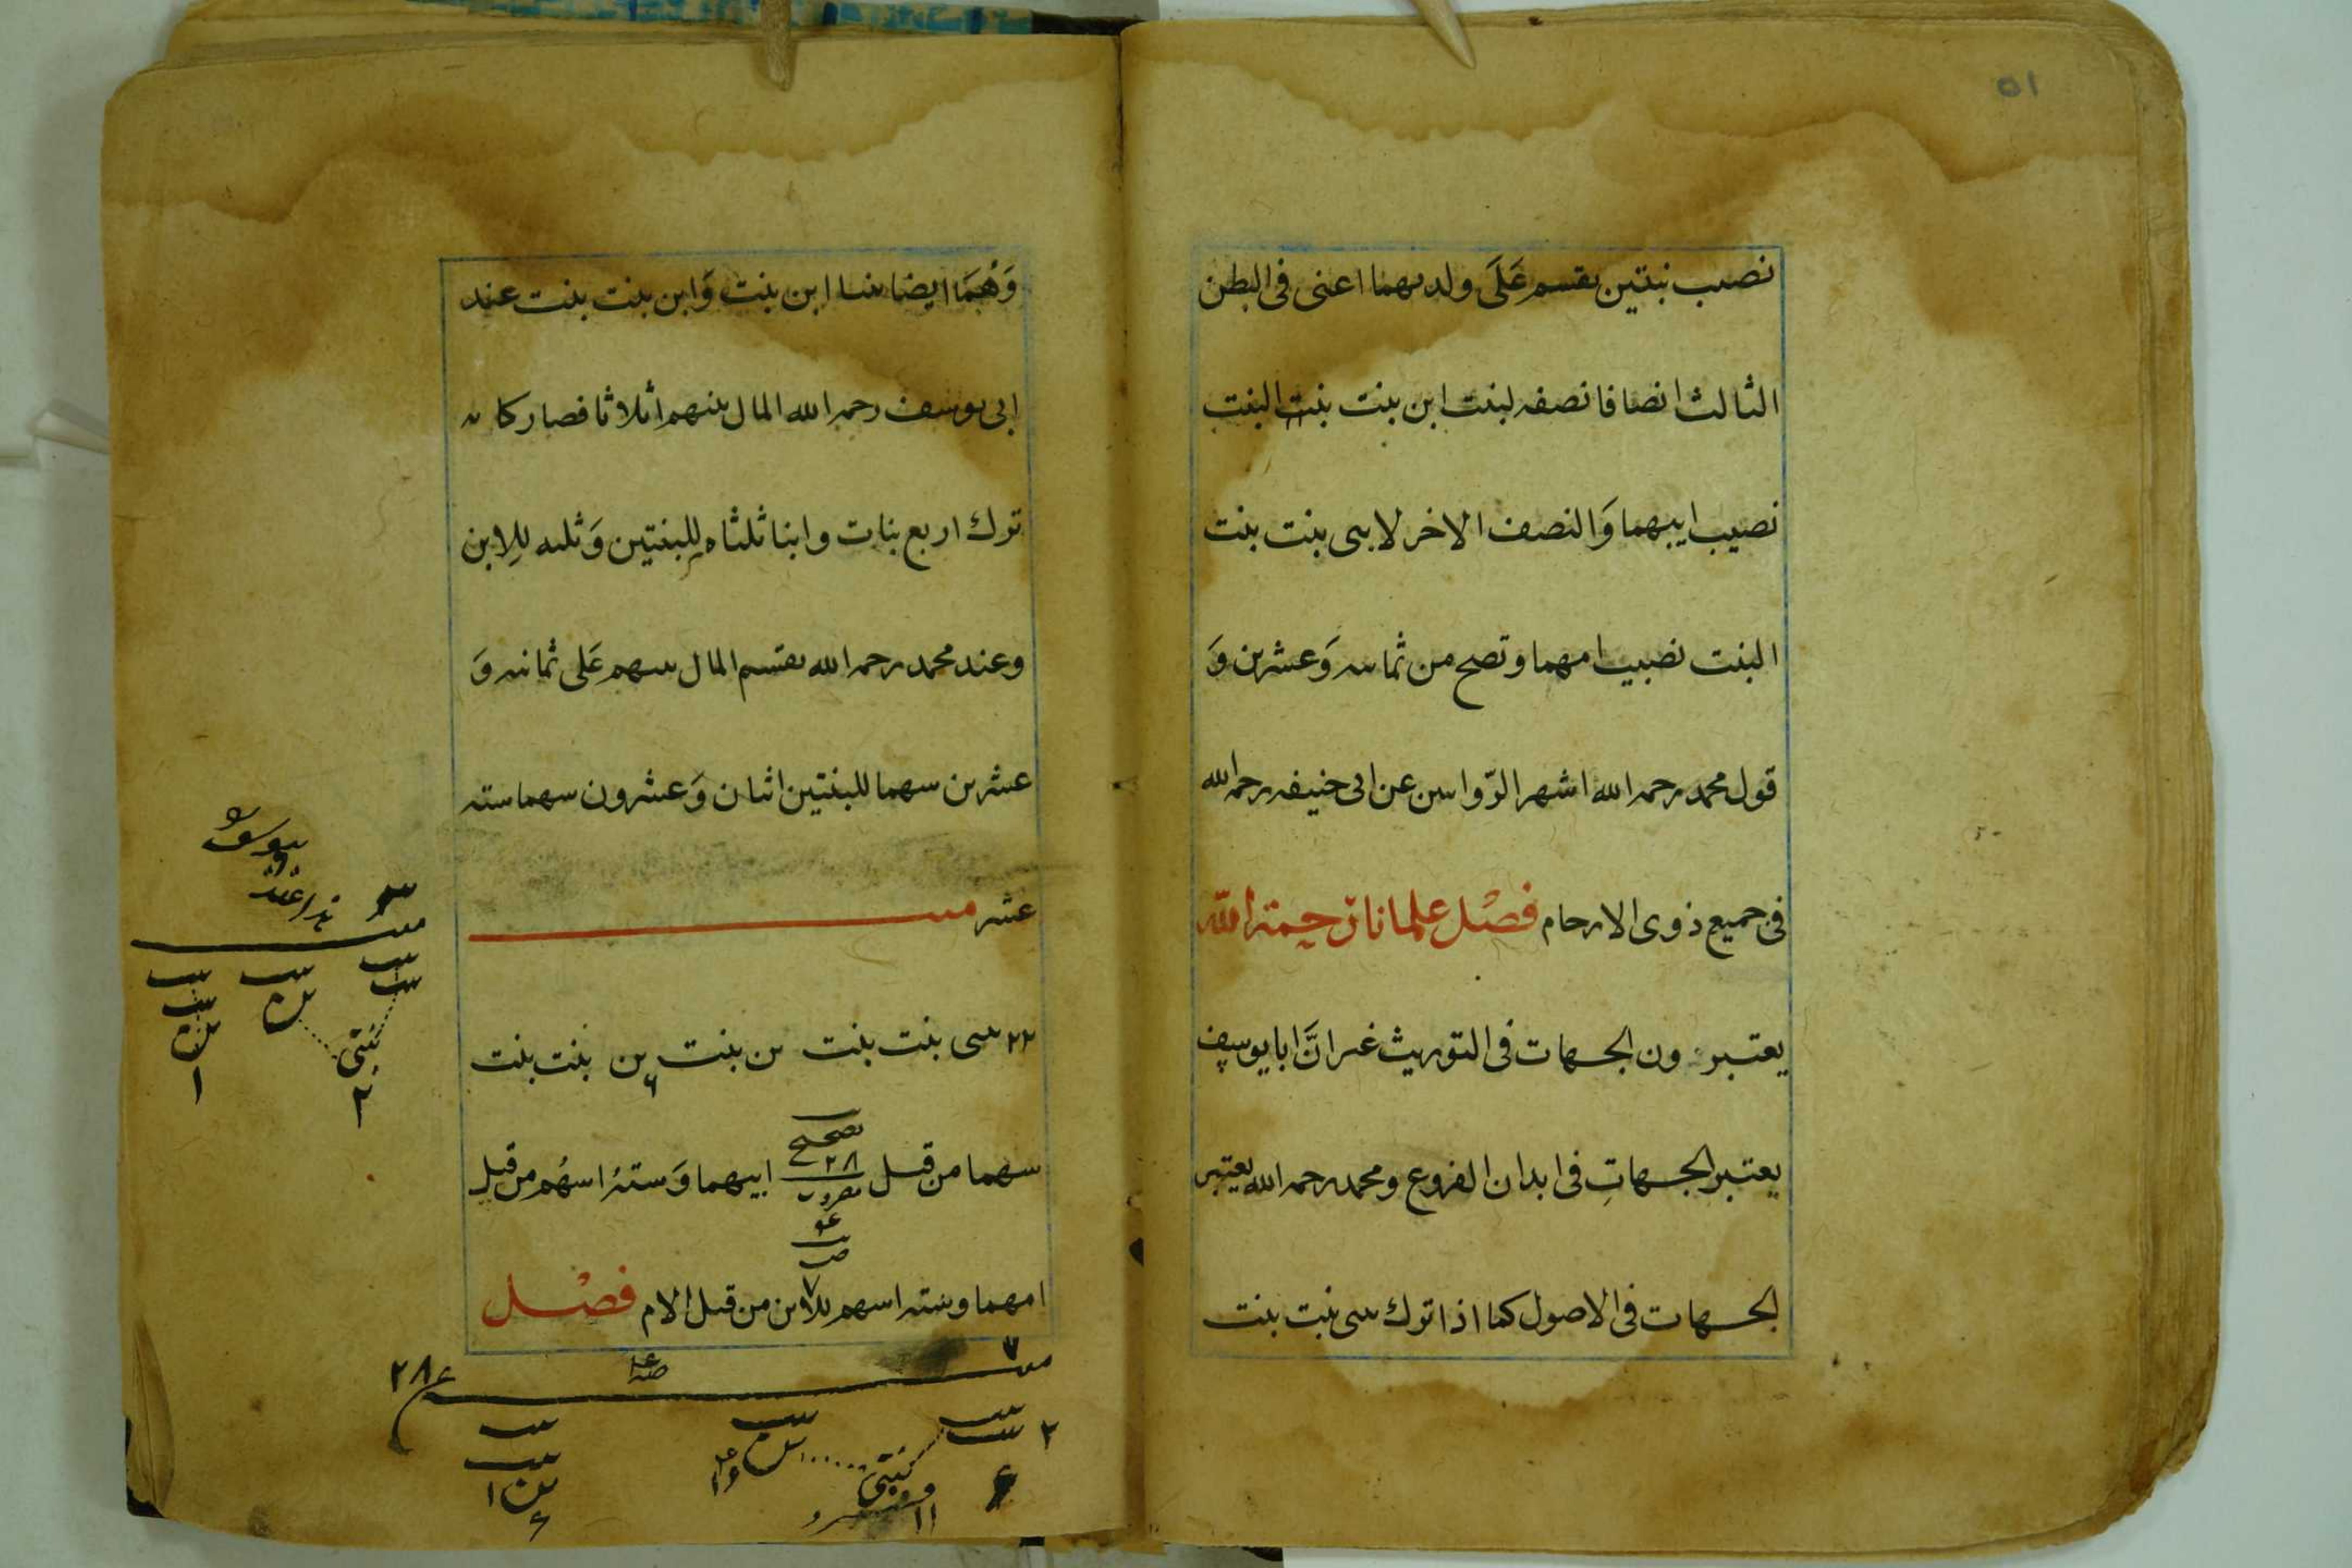 ٥١
نصيب بنتين يقسم عَلَى ولديهما اعنى فى البطن
الثالث انصافا نصفه لبنت ابن بنت بنت البنت
نصيب ابيهما وَالنصف الاخر لابنى بنت بنت
البنت نصيب امهما و تصح من ثمانيه وَعشرين وَ
قول محمد رحمه الله اشهر الرّوايتين عن ابى حنيفه رحمه الله
فى جميع ذوى الارحام فصْل علمانا رحمة الله
يعتبرون الجهات فى التوريث غير انَّ ابا يوسف
يعتبر الجهاتِ فى ابدان الفروع و محمد رحمه الله يعتبر
الجهات فى الاصول كما اذا ترك بنتى بنت بنت
وَهُمَا ايضا بنتا ابن بنت وَابن بنت بنت عند
ابى يوسف رحمه الله المال بينهم اثلاثا فصار كانه
ترك اربع بنات وابنا ثلثاه للبنتين وَثلثه لِلابن
وعند محمد رحمه الله يقسم المال بينهم عَلى ثمانيه وَ
عشرين سهما للبنتين اثنان وَعشرون سهما سته
عشر
بنتى بنت بنت بن بنت بن بنت بنت
سهما من قبل ابيهما وَستهُ اسهُم من قبل
تصحيح
٢٨
مضروب
امهما وسته اسهم للابن من قبل الام فصْل
يوسف
عند
بنتى
٢
١
٧
٢٨
٢
بنتى
١